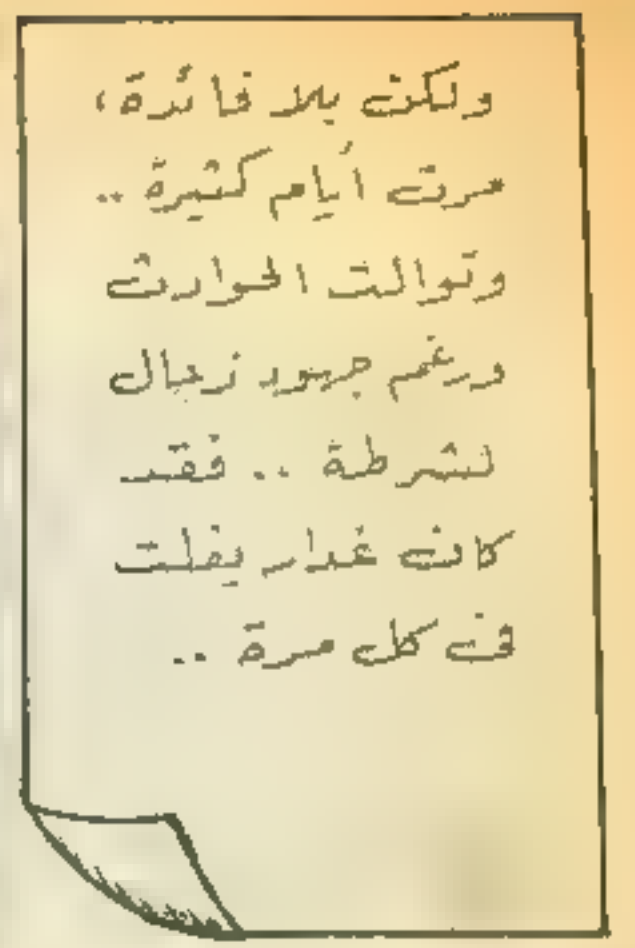 ولكن بلا فائدة ،
مرت أيام كثيرة ..
وتوالت الحوادث
ورغم جهود رجال
لشرطة .. فقد
كان غدار يفلت
فى كل مرة ..